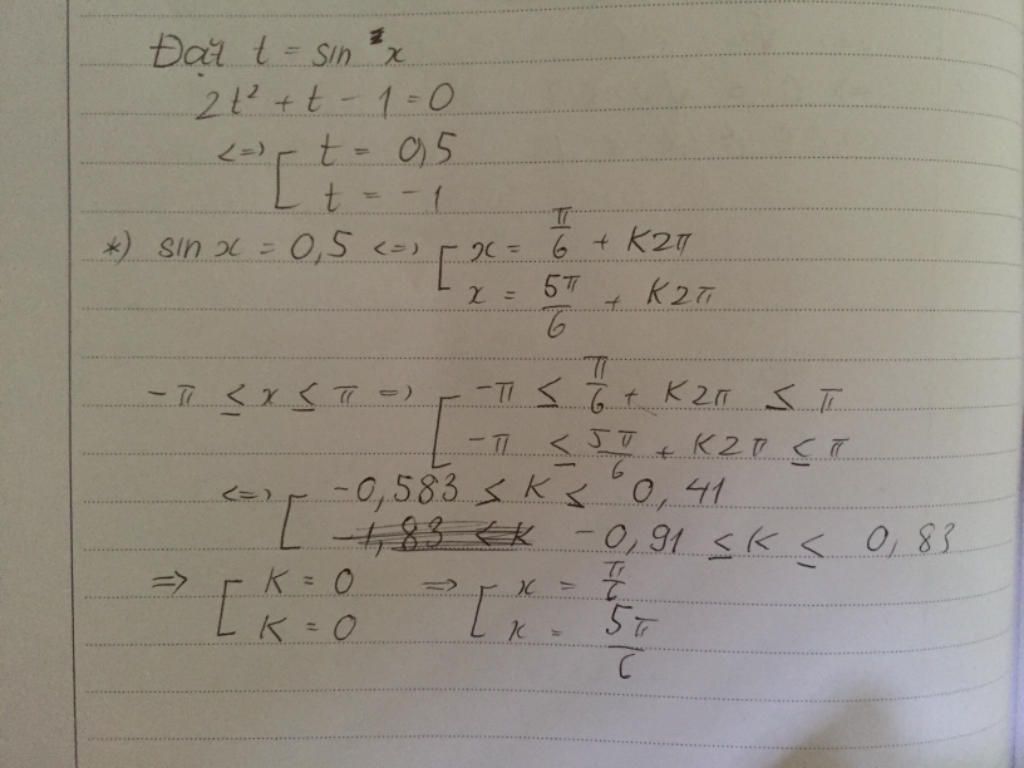 Đặt t = sin x
2t² + t - 1 = 0
<=> [ t = 0,5
t = -1
*) sin x = 0,5 <=> [ x = π/6 + K2π
x = 5π/6 + K2π
-π ≤ x ≤ π => [ -π ≤ π/6 + K2π ≤ π
-π ≤ 5π/6 + K2π ≤ π
<=> [ -0,583 ≤ K ≤ 0,41
-0,91 ≤ K ≤ 0,83
=> [ K = 0 => [ x = π/6
K = 0 x = 5π/6